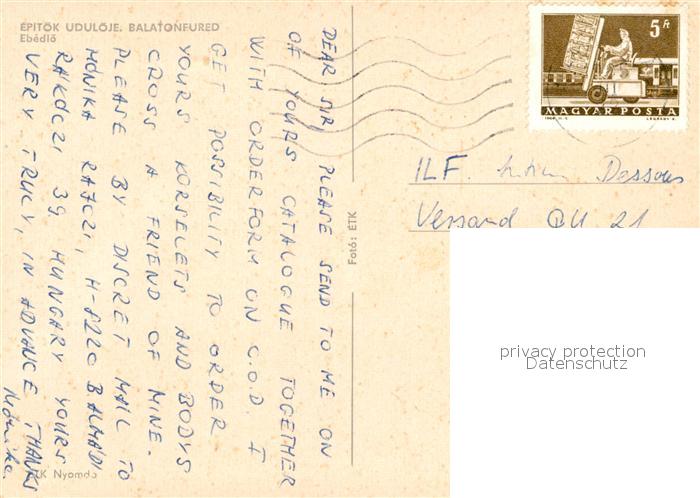 ÉPITŐK UDULŐJE. BALATONFURED
Ebédlő
DEAR SIR, PLEASE SEND TO ME ON
OF YOURS CATALOGUE TOGETHER
WITH ORDERFORM ON C.O.D. I
GET POSSIBILITY TO ORDER
YOURS KORSELETS AND BODYS
CROSS A FRIEND OF MINE.
PLEASE BY DISCRET MAIL TO
MÓNIKA RAJCZI, H-8220 B.ALMÁDI
RÁKÓCZI 39 HUNGARY YOURS
VERY TRULY, IN ADVANCE THANKS
Mónika.
Fotó: ÉTK
ÉTK Nyomda
5 Ft
MAGYAR POSTA
ILF. Dessous
Versand QU 21
privacy protection
Datenschutz